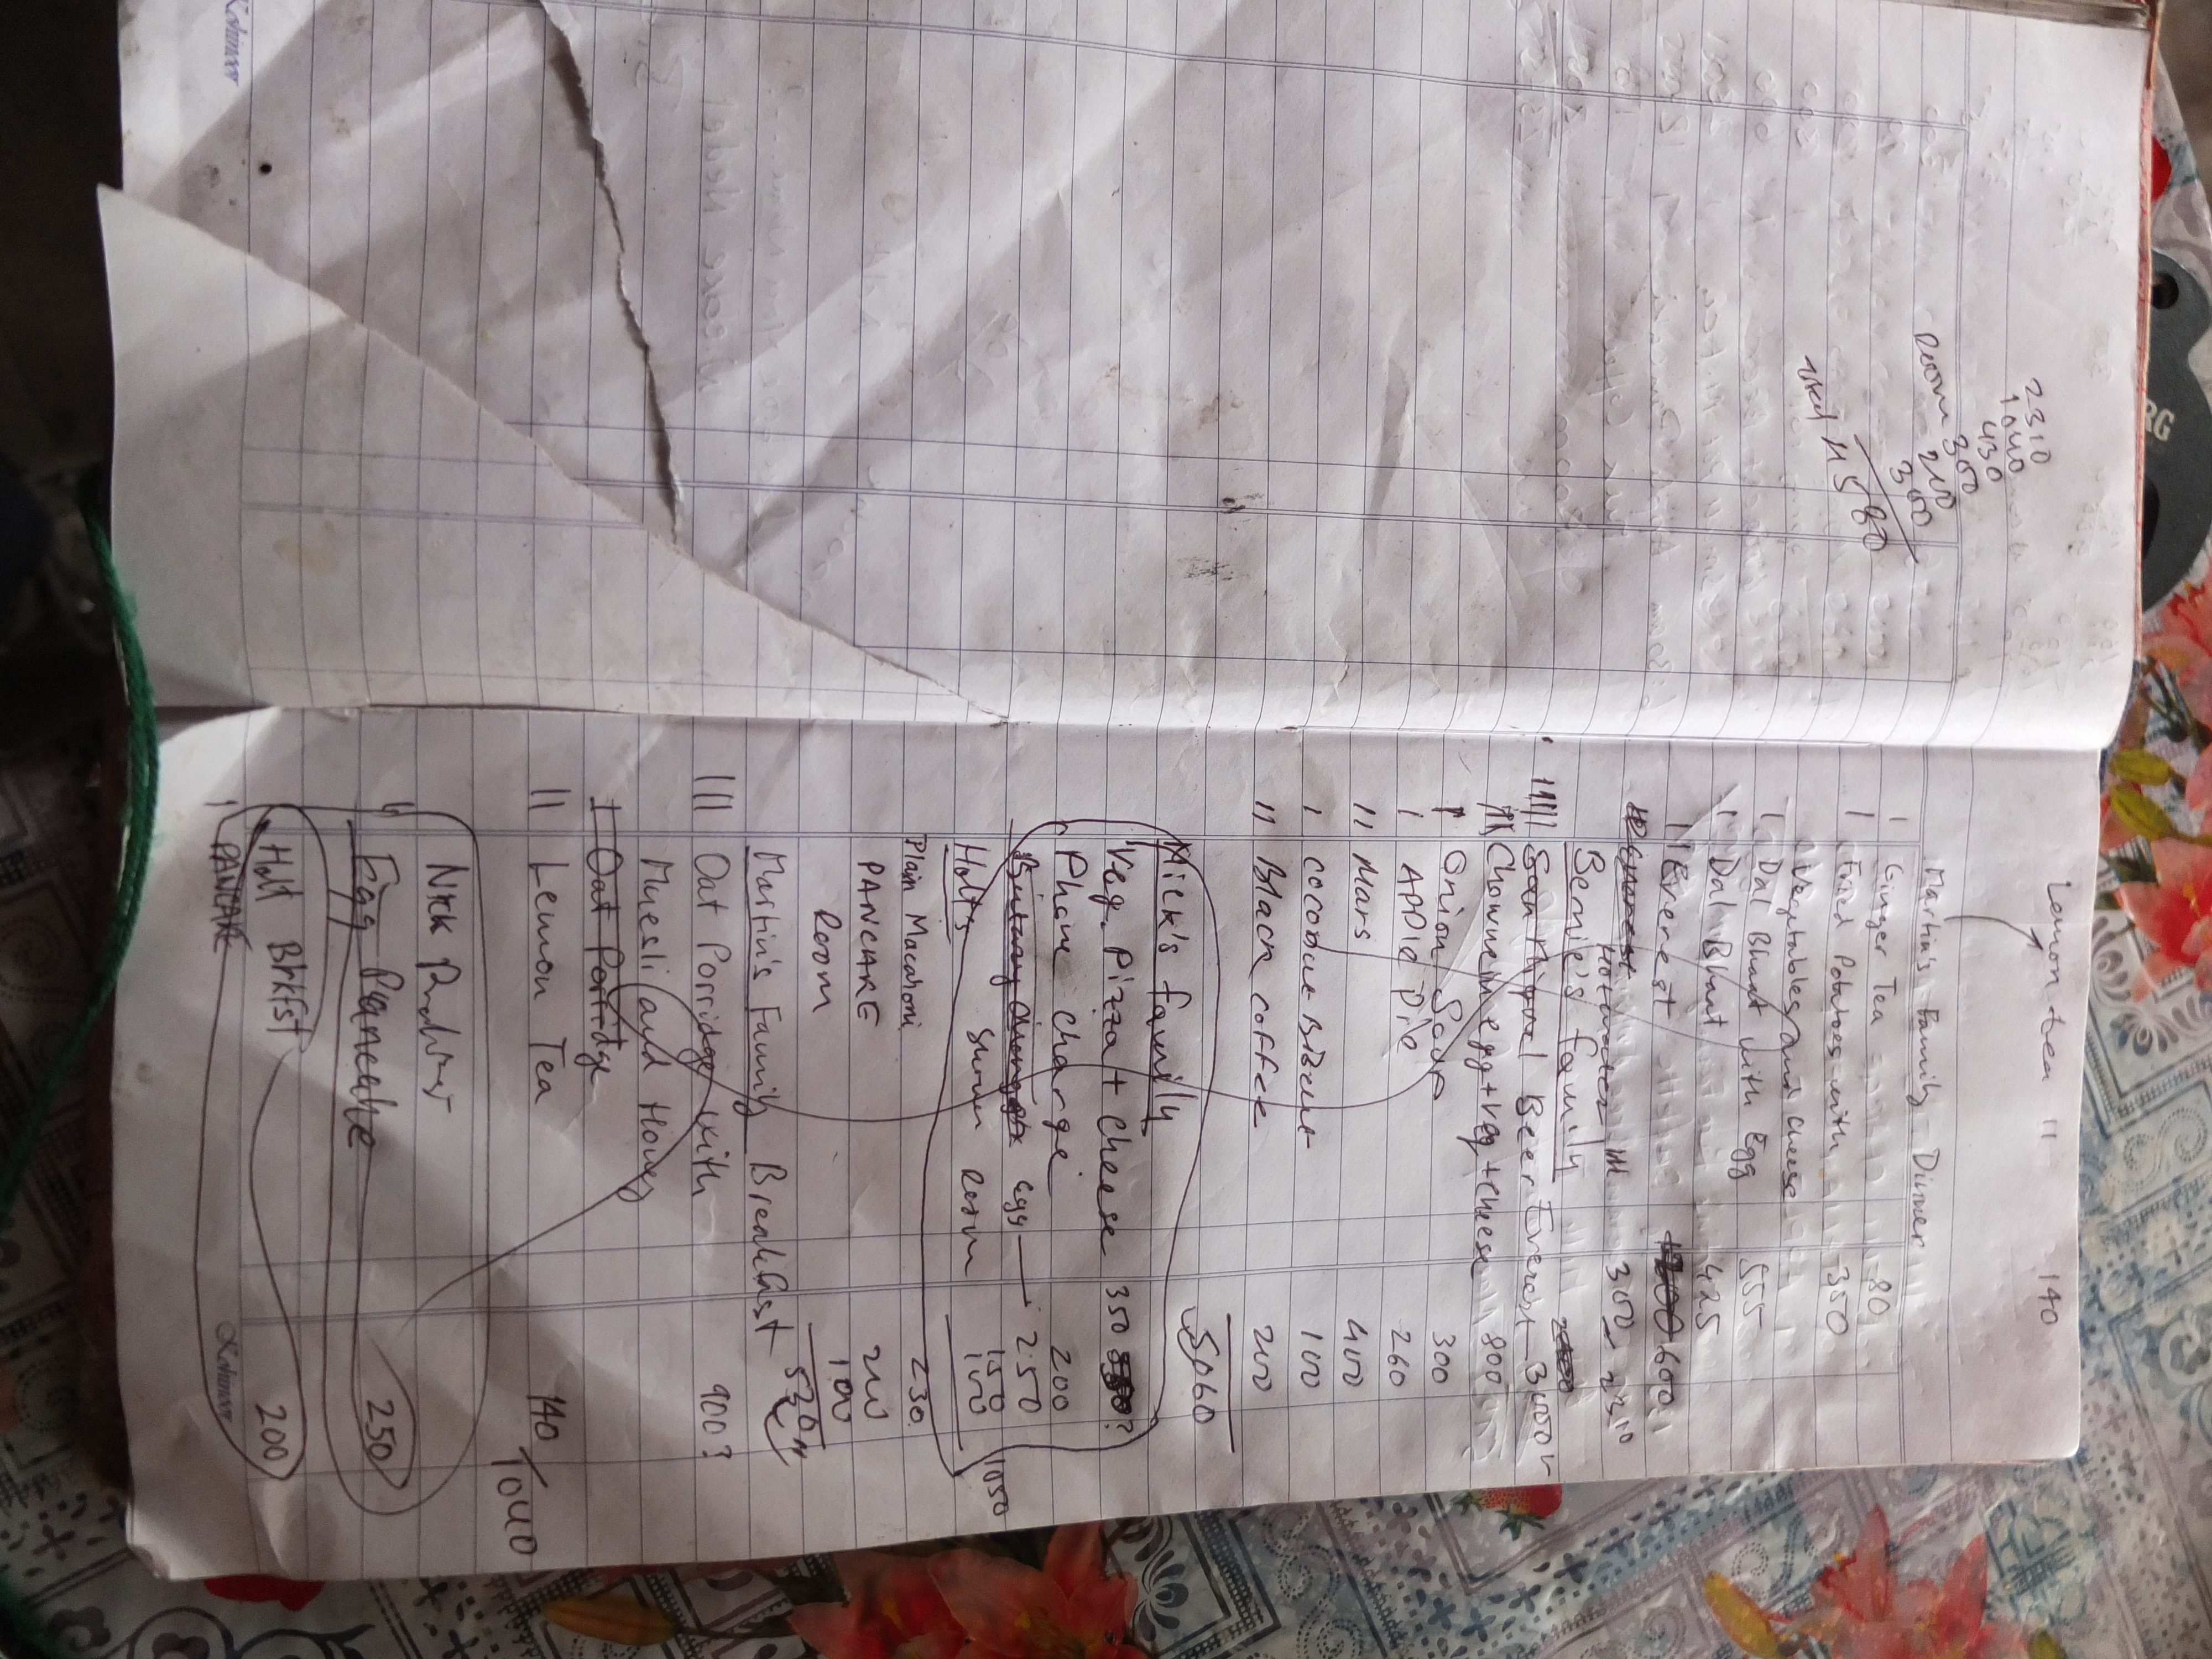 2310
1040
430
Room 300
200
300
Total 4580
Lemon tea 11 140
Martin's Family Dinner
1 Ginger Tea 80
1 Fried Potatoes with 350
Vegetables and cheese
1 Dal Bhaat with Egg 555
1 Dal Bhaat 425
11 Everest 600
Hot water 111 300 2310
Bernie's family
Beer Everest 3000
Chowmein egg+veg+cheese 800
1 Onion Soup 300
1 APPle Pie 260
11 Mars 400
1 cocobue 100
11 Black coffee 200
5060
Mick's family
Veg. Pizza + cheese 350
Phone charge 200
egg 250
150
Holts 100
1050
Plain Macahoni 230
PANCAKE 200
Room 100
530
Martin's Family Breakfast
111 Oat Porridge with 900?
Muesli and Honey
1 Oat Porridge
11 Lemon Tea 140
1040
Nick
Egg Pancake 250
Holt Brkfst 200
1 PANCAKE
Kohinoor
Kohinoor
RG